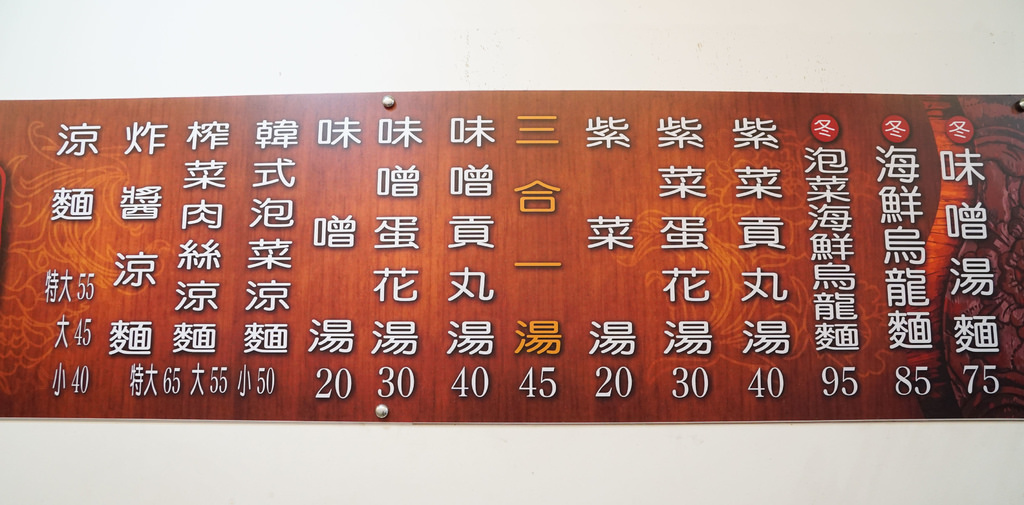 涼麵
特大 55
大 45
小 40
炸醬涼麵
榨菜肉絲涼麵
韓式泡菜涼麵
特大 65 大 55 小 50
味噌湯
20
味噌蛋花湯
30
味噌貢丸湯
40
三合一湯
45
紫菜湯
20
紫菜蛋花湯
30
紫菜貢丸湯
40
冬 泡菜海鮮烏龍麵
95
冬 海鮮烏龍麵
85
冬 味噌湯麵
75